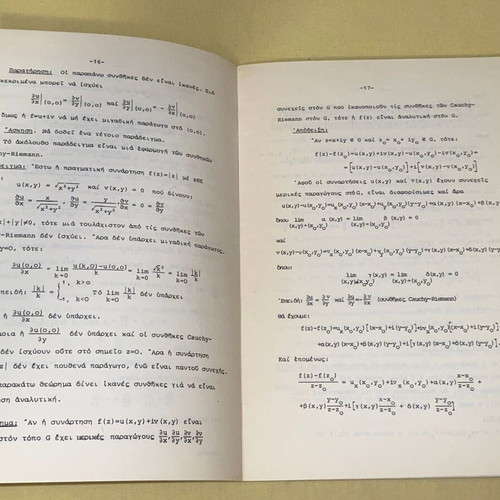 -16-
Παρατήρηση: οἱ παραπάνω συνθῆκες δέν εἶναι ἱκανές. Διό
κεκριμένα μπορεῖ νά ἰσχύει
∂u/∂x|(0,0) = ∂v/∂y|(0,0) καί ∂u/∂y|(0,0) = - ∂v/∂x|(0,0)
ὅμως ἡ f=u+iv νά μή ἔχει μιγαδική παράγωγο στό (0,0).
Ἄσκηση. Νά δοθεῖ ἕνα τέτοιο παράδειγμα.
Τό ἀκόλουθο παράδειγμα εἶναι μιά ἐφαρμογή τῶν συνθηκῶν
Cauchy-Riemann.
Ἔστω ἡ πραγματική συνάρτηση f(z)=|z| μέ
u(x,y) = √x²+y² καί v(x,y) = 0 πού δίνουν:
∂u/∂x = x/√x²+y², ∂u/∂y = y/√x²+y², ∂v/∂x=0=∂v/∂y
|x|+|y|≠0, τότε μιά τουλάχιστον ἀπό τίς συνθῆκες τῶν
-Riemann δέν ἰσχύει. Ἄρα δέν ὑπάρχει μιγαδική παράγωγος.
y=0, τότε:
∂u(0,0)/∂x = lim k→0 u(k,0)-u(0,0)/k = lim k→0 √k²/k = lim k→0 |k|/k
ἐπειδή: |k|/k = { 1, k>0 -1, k<0 Τό lim k→0 |k|/k δέν ὑπάρχει
ἡ ∂u(0,0)/∂x δέν ὑπάρχει.
ἡ ∂u(0,0)/∂y δέν ὑπάρχει καί οἱ συνθῆκες Cauchy-
δέν ἰσχύουν οὔτε στό σημεῖο z=0. Ἄρα ἡ συνάρτηση
|z| δέν ἔχει πουθενά παράγωγο, ἐνῶ εἶναι παντοῦ συνεχής.
παρακάτω θεώρημα δίνει ἱκανές συνθῆκες γιά νά εἶναι
ἀναλυτική.
Ἄν ἡ συνάρτηση f(z)=u(x,y)+iv(x,y) εἶναι
στόν τόπο G ἔχει μερικές παραγώγους ∂u/∂x, ∂u/∂y, ∂v/∂x, ∂v/∂y
-17-
συνεχεῖς στόν G πού ἱκανοποιοῦν τίς συνθῆκες τῶν Cauchy-
Riemann στόν G, τότε ἡ f(z) εἶναι ἀναλυτική στόν G.
Ἀπόδειξη:
Ἄν z=x+iy ∈ G καί z₀= x₀+ iy₀ ∈ G, τότε:
f(z)-f(z₀)=u(x,y)+iv(x,y)-u(x₀,y₀)-iv(x₀,y₀)=
=[u(x,y)-u(x₀,y₀)]+i[v(x,y)-v(x₀,y₀)]
Ἀφοῦ οἱ συναρτήσεις u(x,y) καί v(x,y) ἔχουν συνεχεῖς
μερικές παραγώγους στό G, εἶναι διαφορίσιμες καί ἄρα
u(x,y)-u(x₀,y₀)=uₓ(x₀,y₀)(x-x₀)+u_y(x₀,y₀)(y-y₀)+α(x,y)(x-x₀)+β(x,y)
ὅπου lim (x,y)→(x₀,y₀) α(x,y) = lim (x,y)→(x₀,y₀) β(x,y) = 0
καί
v(x,y)-v(x₀,y₀)=vₓ(x₀,y₀)(x-x₀)+v_y(x₀,y₀)(y-y₀)+γ(x,y)(x-x₀)+δ(x,y)
ὅπου:
lim (x,y)→(x₀,y₀) γ(x,y) = lim (x,y)→(x₀,y₀) δ(x,y) = 0
Ἐπειδή: ∂u/∂x = ∂v/∂y καί ∂u/∂y=-∂v/∂x (συνθῆκες Cauchy-Riemann)
θά ἔχουμε:
f(z)-f(z₀)=uₓ(x₀,y₀)[(x-x₀)+i(y-y₀)]+ivₓ(x₀,y₀)[(x-x₀)+i(y-y₀)]+
+α(x,y)(x-x₀)+β(x,y)(y-y₀)+i[γ(x,y)(x-x₀)+δ(x,y)(y-y₀)].
Καί ἑπομένως:
f(z)-f(z₀)/z-z₀ = uₓ(x₀,y₀)+ivₓ(x₀,y₀)+α(x,y) x-x₀/z-z₀ +
+β(x,y) y-y₀/z-z₀ +i[γ(x,y) x-x₀/z-z₀ + δ(x,y) y-y₀/z-z₀]